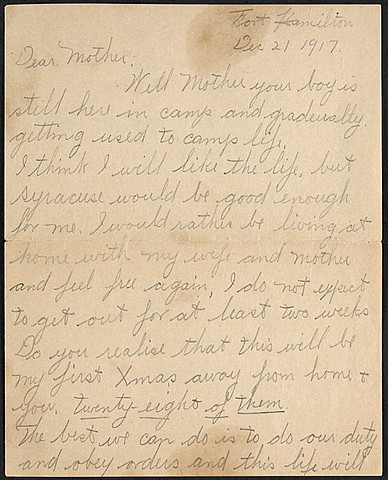 Fort Hamilton
Dec 21 1917.
Dear Mother;
Well Mother your boy is
still here in camp and gradeually
getting used to camps life.
I think I will like the life, but
Syracuse would be good enough
for me. I would rather be living at
home with my wife and mother
and feel free again, I do not expect
to get out for at least two weeks
Do you realise that this will be
my first Xmas away from home +
you, twenty-eight of them.
The best we can do is to do our duty
and obey orders and this life will